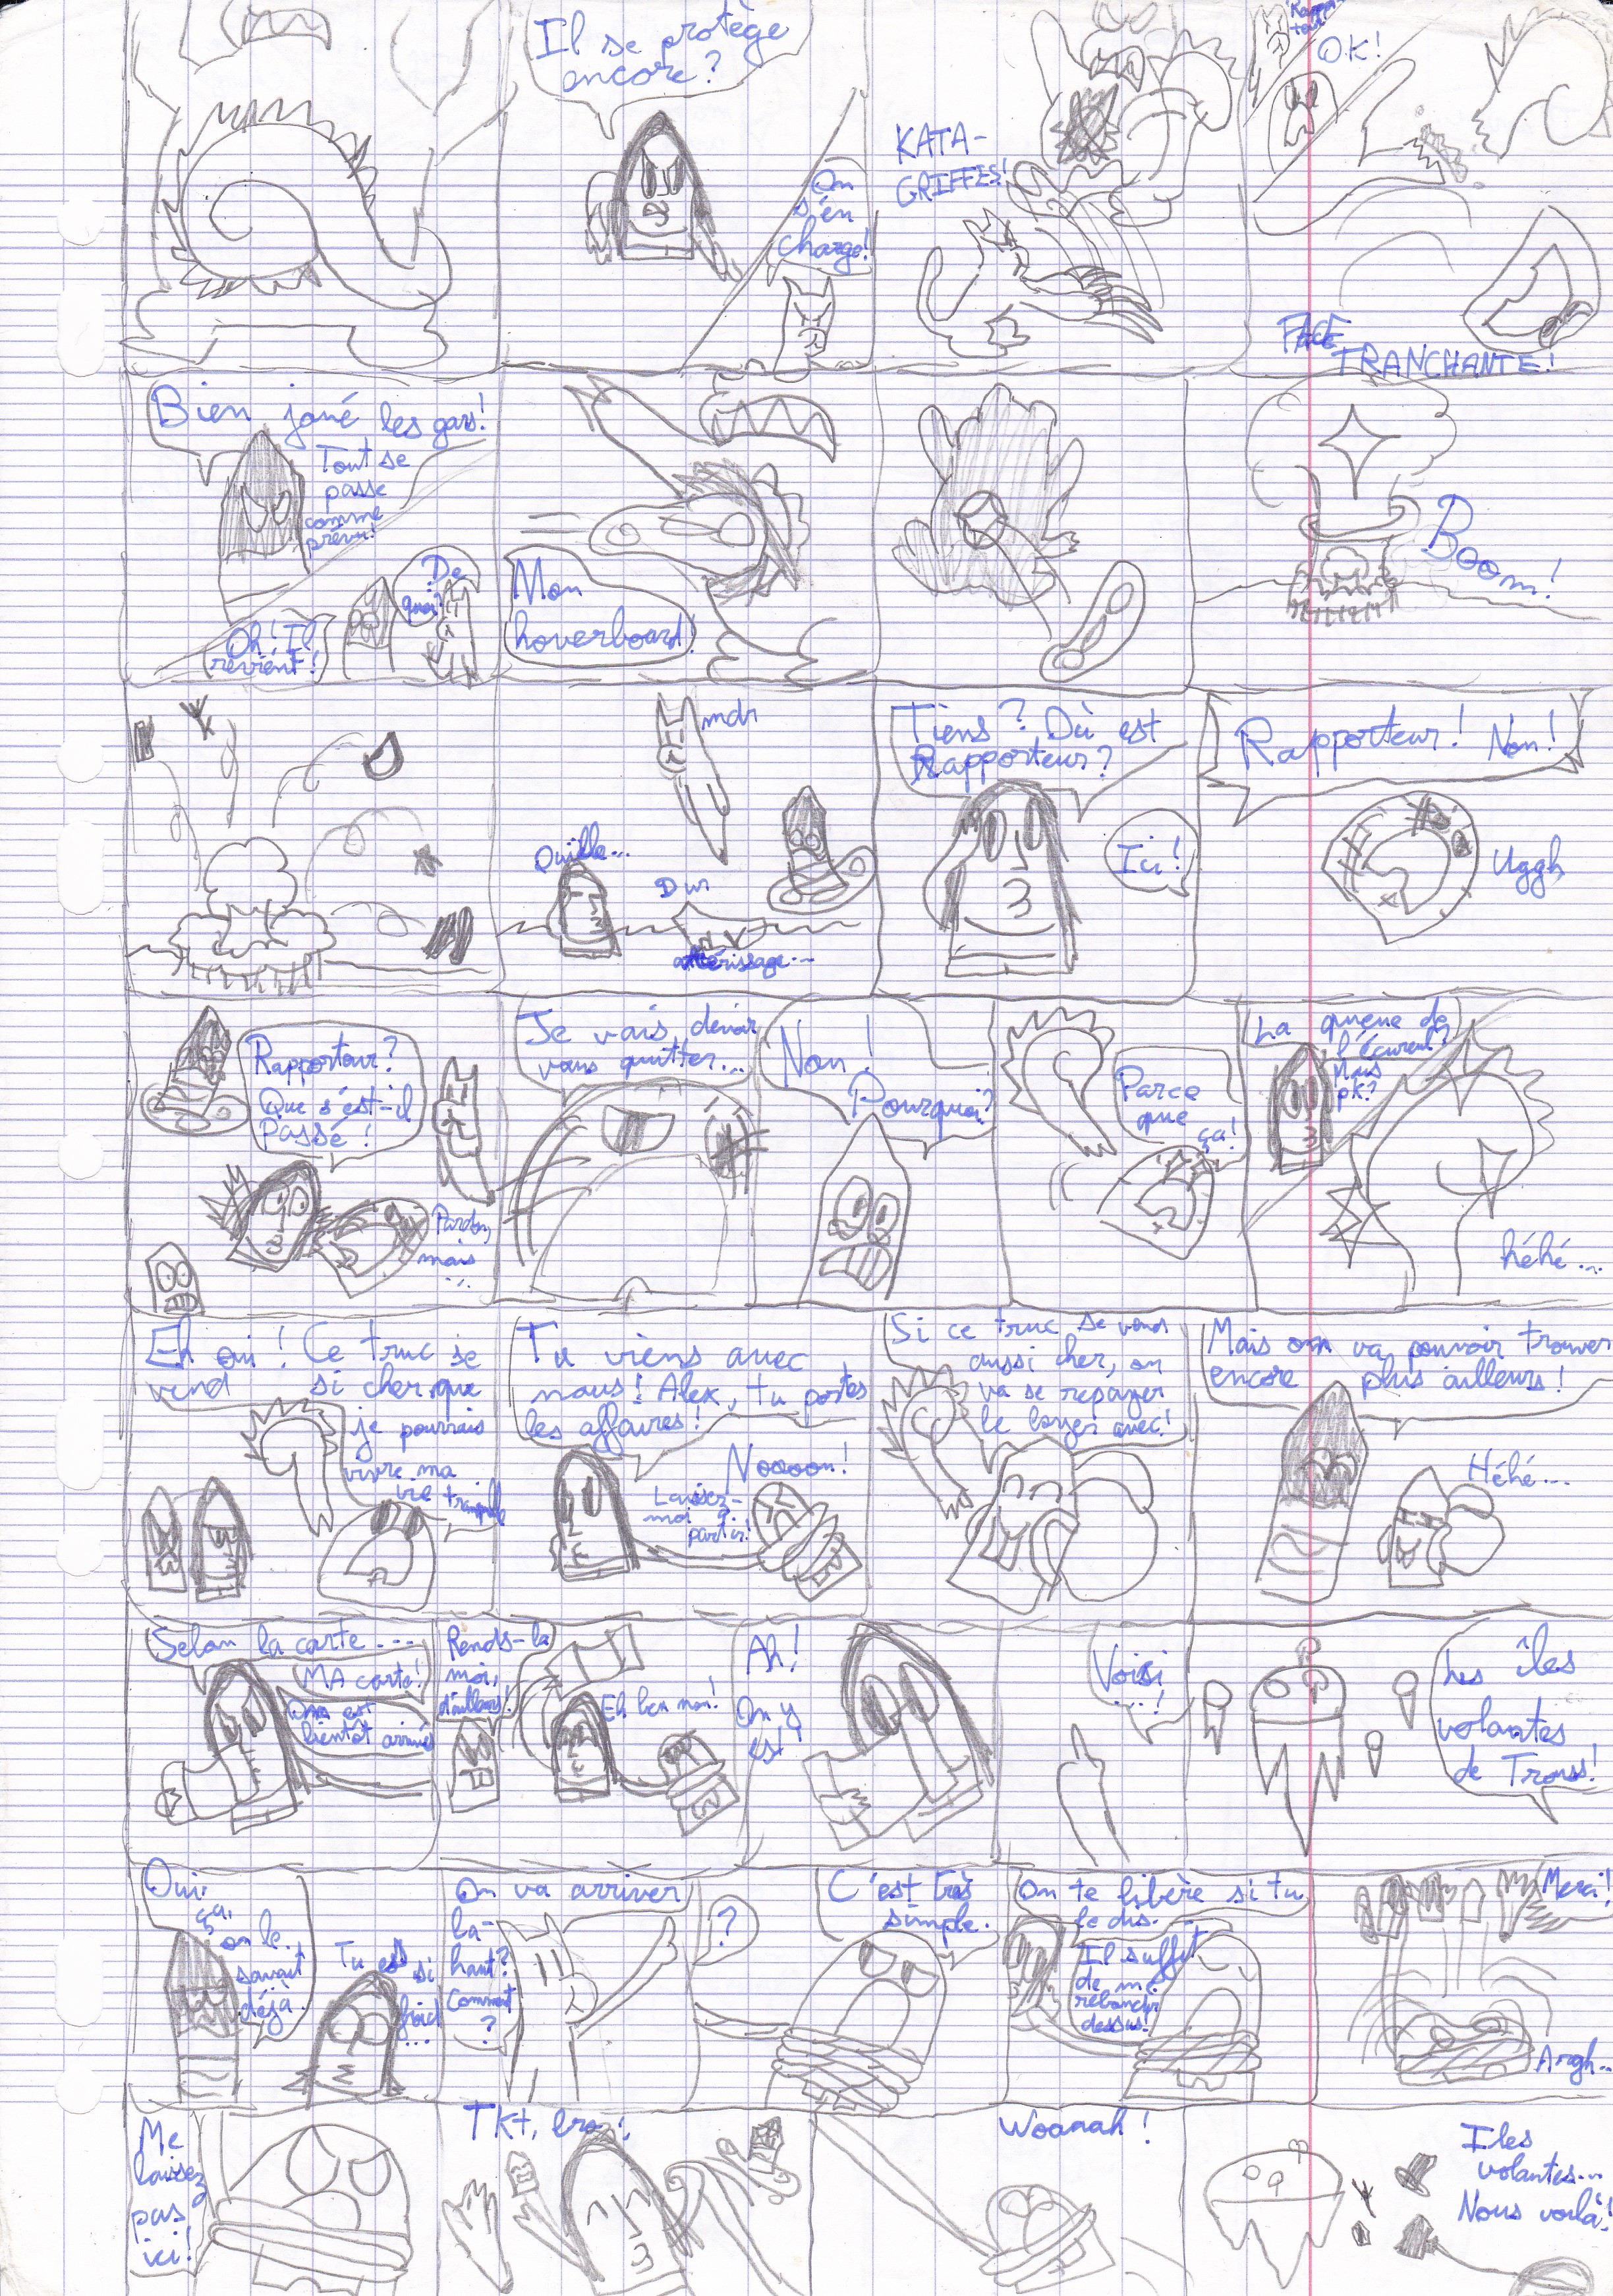 Il se protège
encore?
On
s'en
charge!
KATA-
GRIFFES!
Rappor-
teur!
OK!
FACE
TRANCHANTE!
Bien joué les gars!
Tout se
passe
comme
prévu!
De
quoi?
Oh! Il
revient!
Mon
hoverboard!
Boom!
mdr
Ouille...
Dur
attérissage...
Tiens? Où est
Rapporteur?
Ici!
Rapporteur! Non!
Uggh
Rapporteur?
Que s'est-il
passé!
Pardon,
mais
...
Je vais devoir
vous quitter...
Non!
Pourquoi?
Parce
que
ça!
La queue de
l'écureuil?
Mais
pk?
héhé...
Eh oui! Ce truc se
vend si cher que
je pourrais
vivre ma
vie tranquille
Tu viens avec
nous! Alex, tu portes
les affaires!
Noooon!
Laissez-
moi
partir!
Si ce truc se vend
aussi cher, on
va se repayer
le loyer avec!
Mais on va pouvoir trouver
encore plus ailleurs!
Héhé...
Selon la carte...
MA carte!
On est
bientôt arrivé
Rends-la
moi,
d'ailleurs!
Eh ben non!
Ah!
On y
est!
Voici
...!
Les îles
volantes
de Tronss!
Oui,
ça,
on le
savait
déjà.
Tu es si
froid
...
On va arriver
là-
haut?
Comment
?
?
C'est très
simple.
On te libère si tu
le dis.
Il suffit
de me
rebondir
dessus!
Merci!
Argh...
Me
laissez
pas
ici!
Tkt, bro!
Woaaah!
Iles
volantes...
Nous voilà!